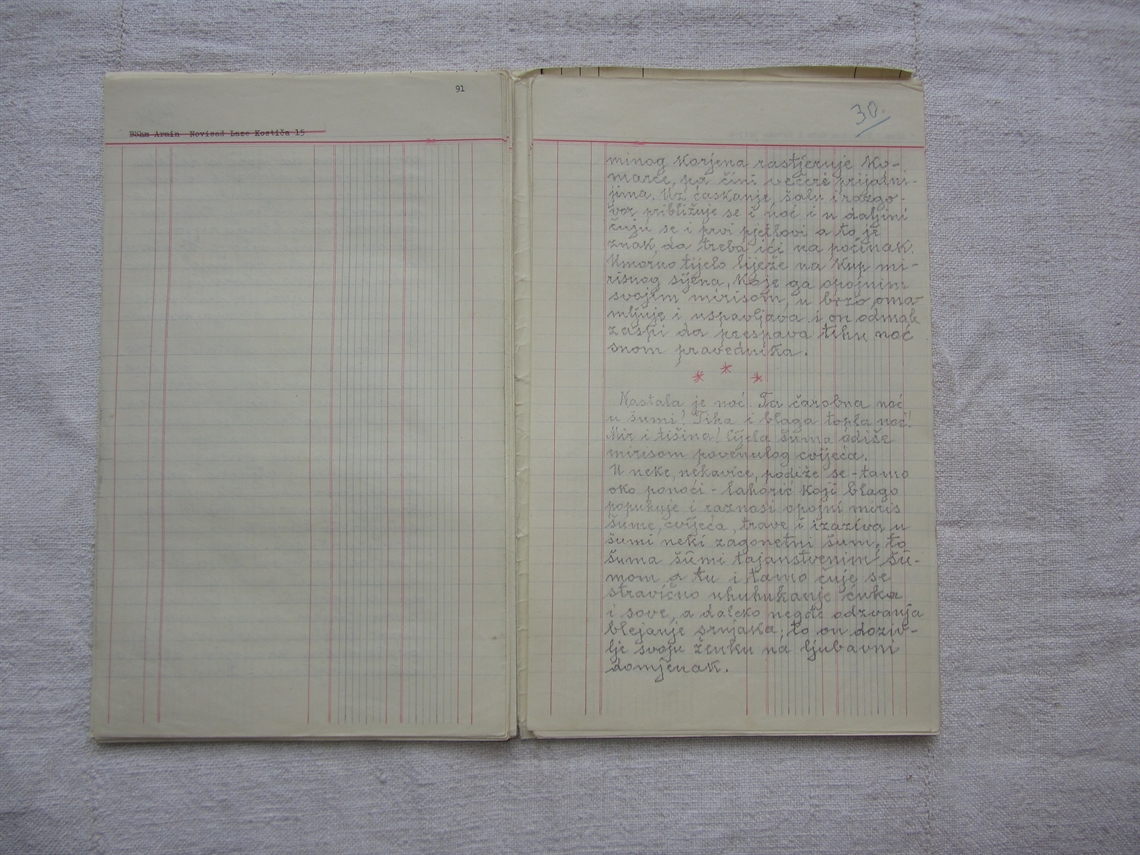 91
Böhm Armin Novisad Laze Kostića 15
30.
minog korjena rastjeruje ko-
marce, pa čini večere prijatni-
jima. Uz ćaskanje, šalu i razgo-
vor približuje se i noć i u daljini
čuju se i prvi pjetlovi a to je
znak, da treba ići na počinak.
Umorno tijelo liježe na kup mi-
risnog sijena, koje ga opojnim
svojim mirisom, u brzo, oma-
mljuje i uspavljava i on odmah
zaspi da prespava tihu noć
snom pravednika.
* * *
Nastala je noć. Ta čarobna noć
u šumi! Tiha i blaga topla noć!
Mir i tišina! Cijela šuma odiše
mirisom povenulog cvijeća.
U neke, nekavice, podiže se - tamo
oko ponoći - lahorić koji blago
popuhuje i raznasi opojni miris
šume, cvijeća, trave i izaziva u
šumi neki zagonetni šum, to
šuma šumi tajanstvenim šu-
mom a tu i tamo čuje se
stravično uhuhukanje ćuka
i sove, a daleko negde odzvanja
blejanje srnjaka; to on doziv-
lje svoju ženku na ljubavni
domjenak.